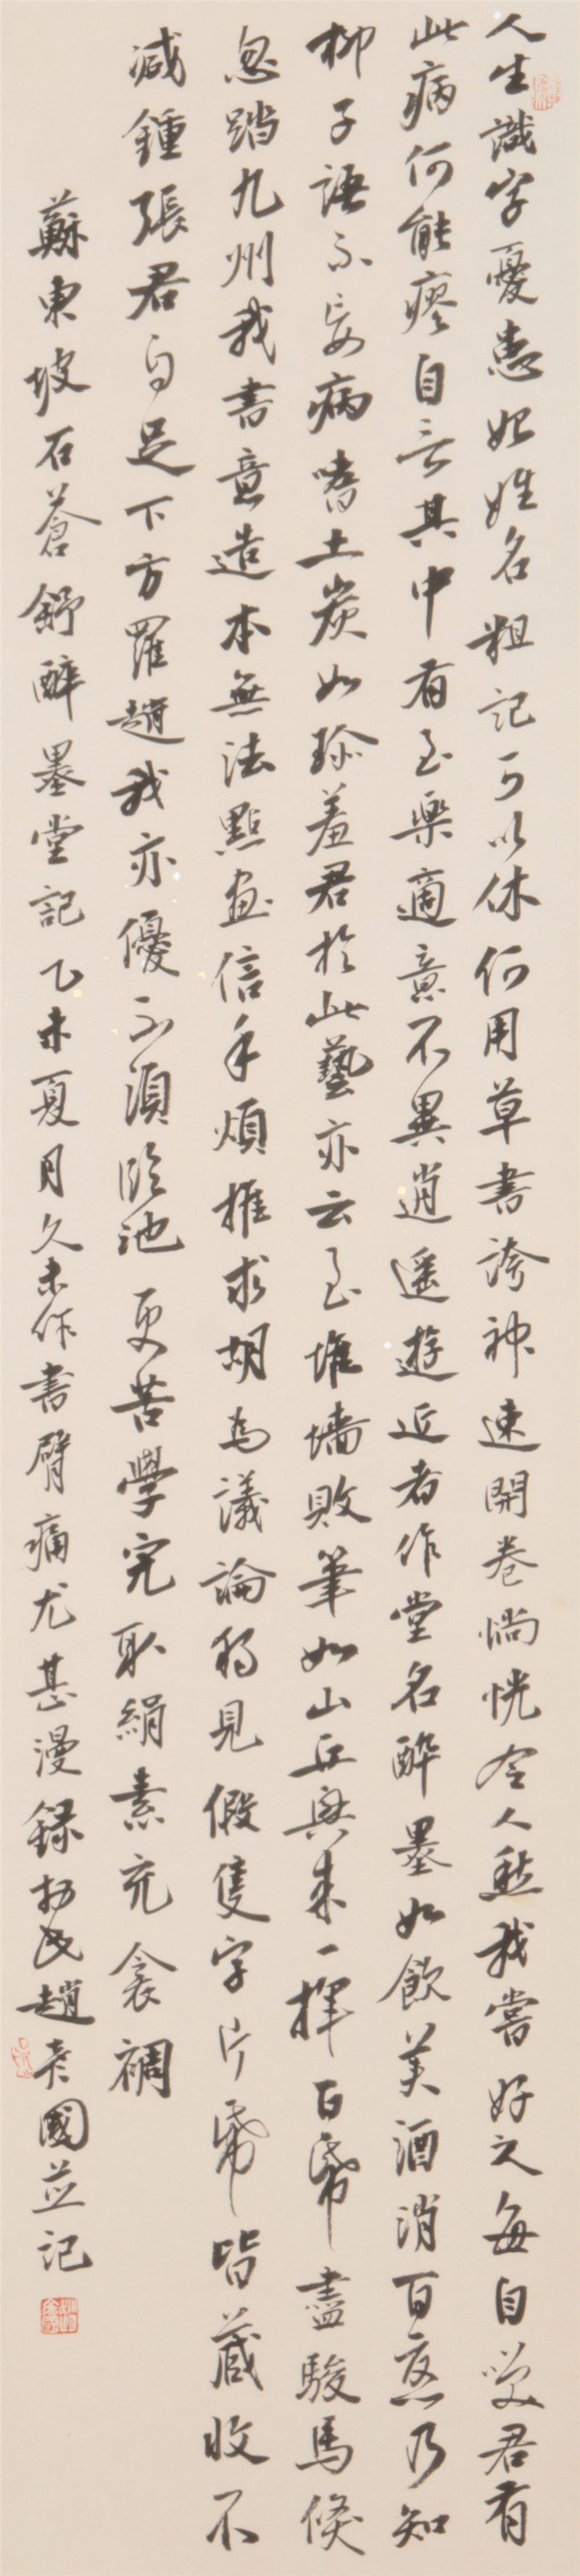 人生識字憂患始姓名粗記可以休何用草書誇神速開卷惝恍令人愁我嘗好之每自笑君有
此病何能瘳自言其中有至樂適意不異逍遥遊近者作堂名醉墨如飲美酒消百憂乃知
柳子語不妄病嗜土炭如珍羞君於此藝亦云至堆墻敗筆如山丘興來一揮百紙盡駿馬倏
忽踏九州我書意造本無法點畫信手煩推求胡為議論獨見假隻字片紙皆藏收不
減鍾張君自足下方羅趙我亦優不須臨池更苦學完取絹素充衾裯
蘇東坡石蒼舒醉墨堂記乙未夏月久未作書臂痛尤甚漫録 趙 國並記